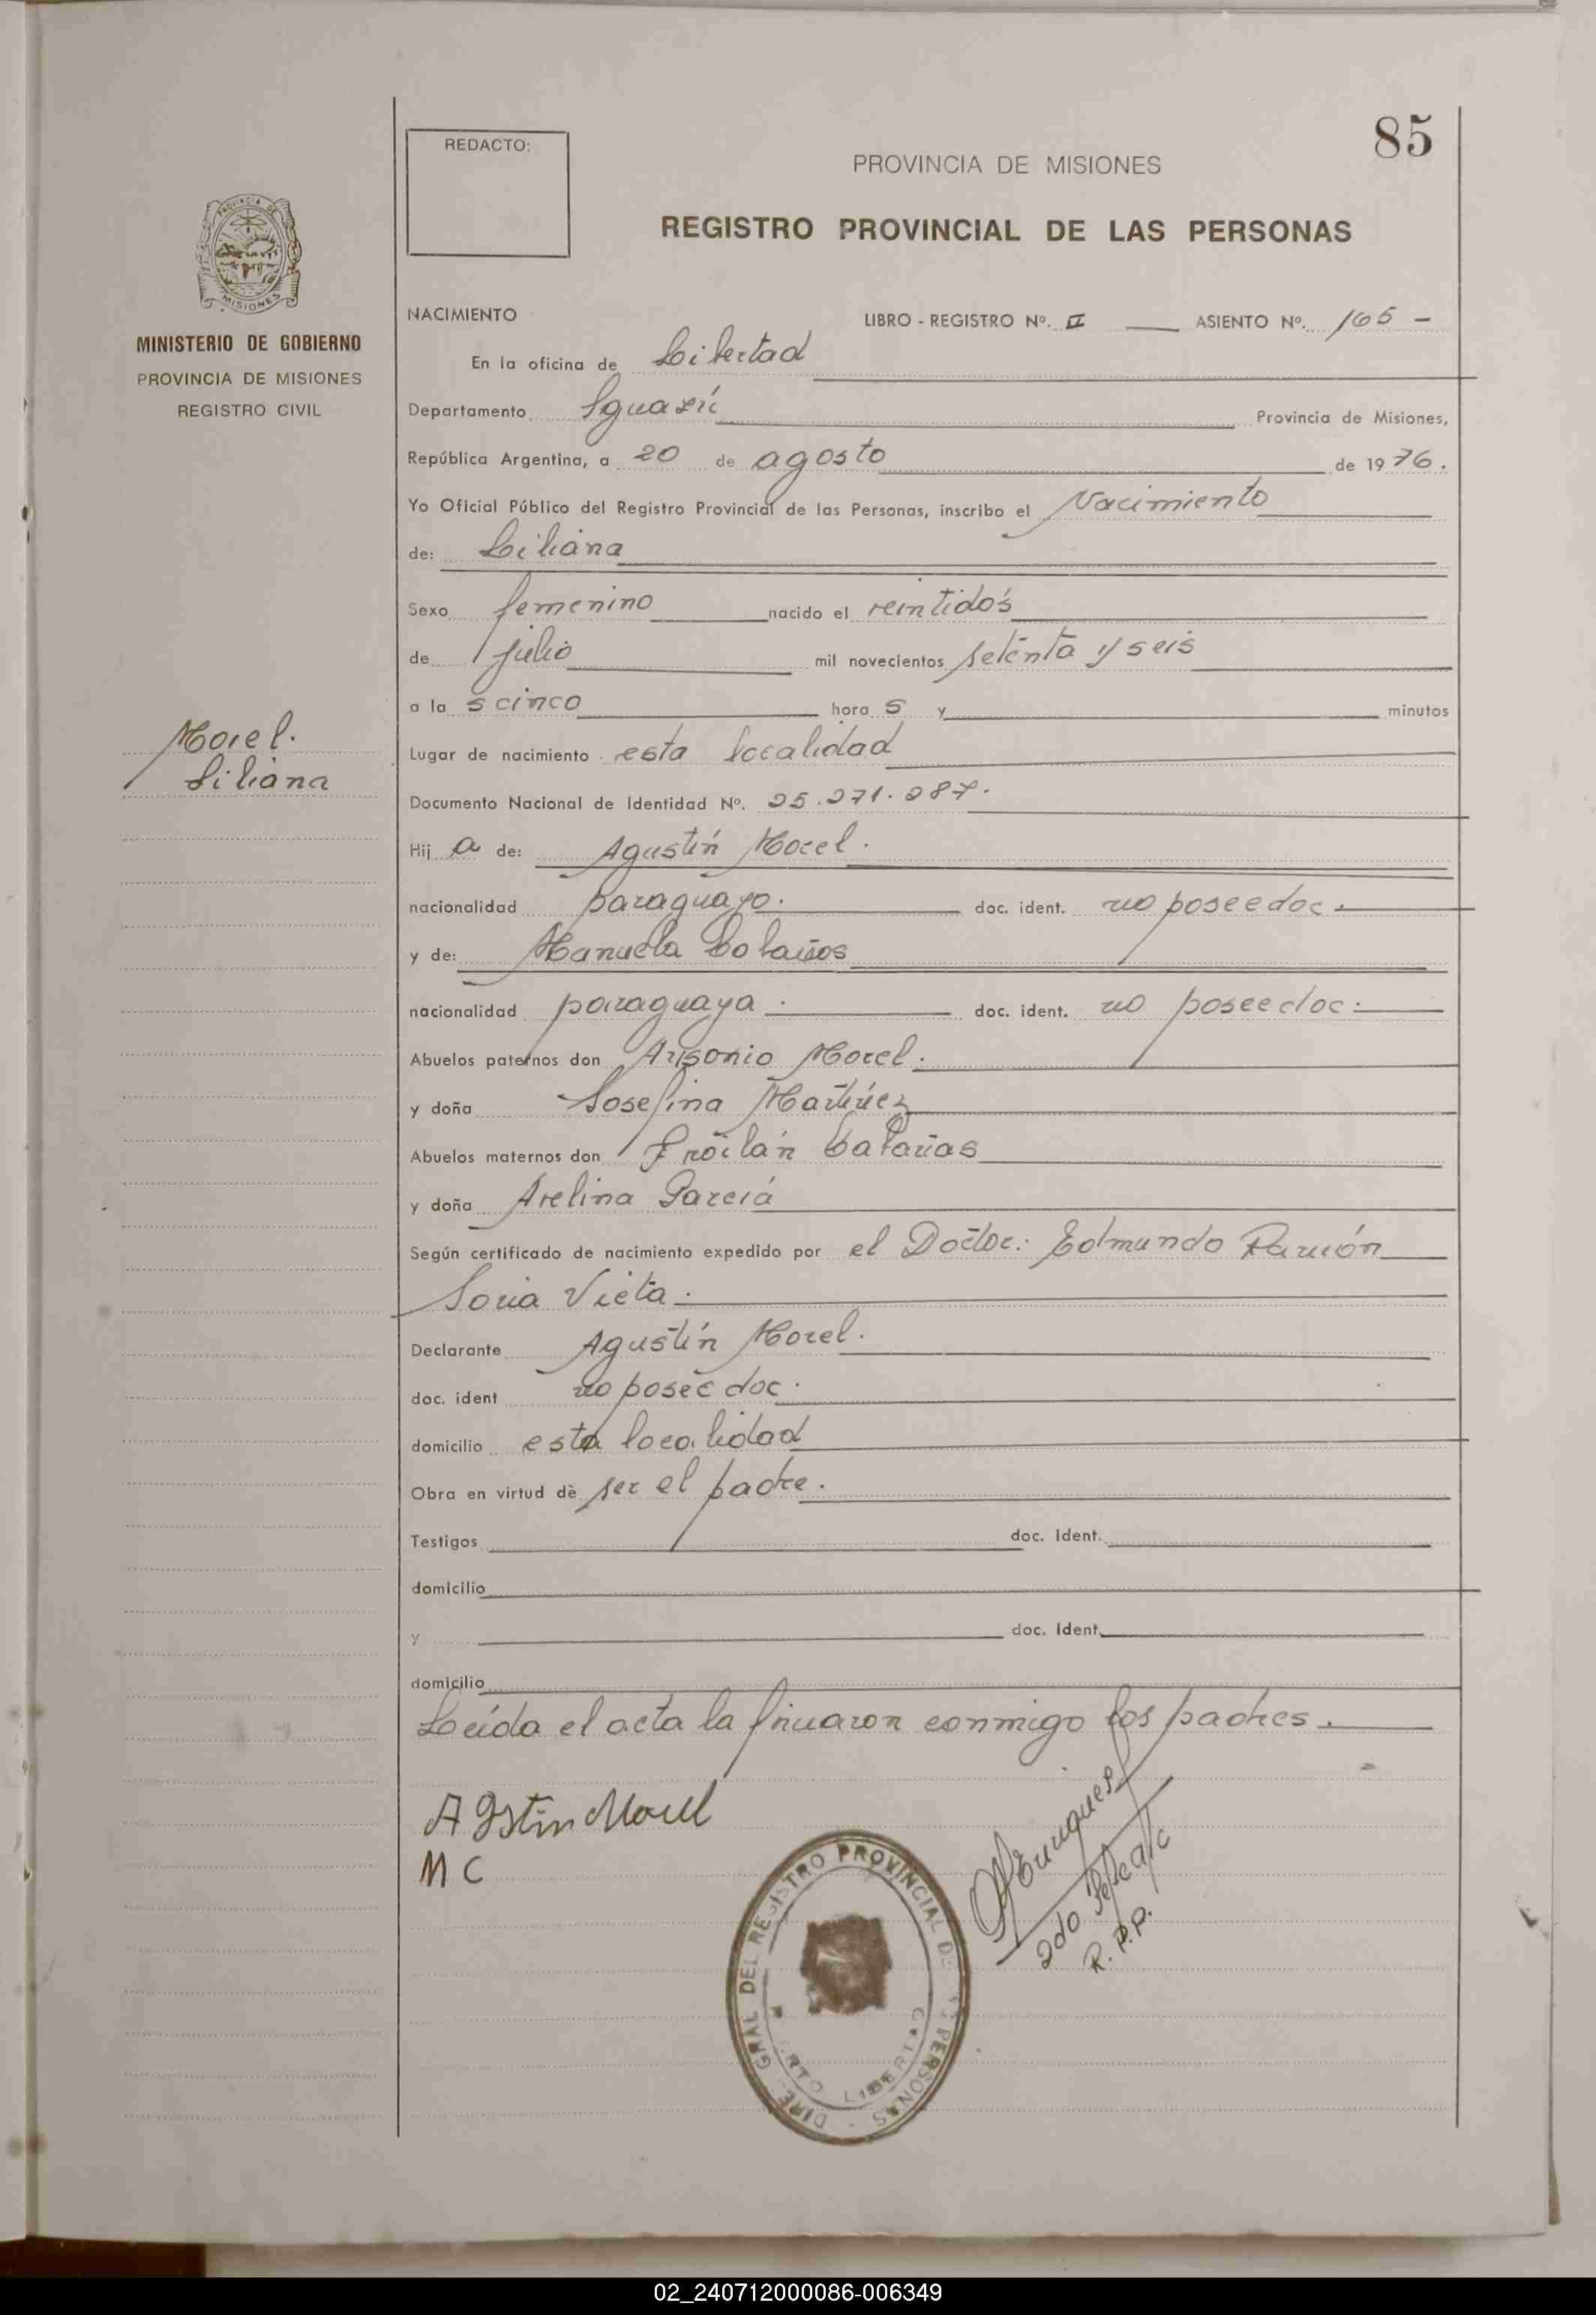 85
REDACTO:
PROVINCIA DE MISIONES
REGISTRO PROVINCIAL DE LAS PERSONAS
PROVINCIA DE MISIONES
MINISTERIO DE GOBIERNO
PROVINCIA DE MISIONES
REGISTRO CIVIL
Morel.
Liliana
NACIMIENTO LIBRO - REGISTRO Nº. II ASIENTO Nº. 165 -
En la oficina de Libertad
Departamento Iguazú Provincia de Misiones,
República Argentina, a 20 de agosto de 1976.
Yo Oficial Público del Registro Provincial de las Personas, inscribo el Nacimiento
de: Liliana
Sexo femenino nacido el veintidós
de julio mil novecientos setenta y seis
a la s cinco hora s y minutos
Lugar de nacimiento esta localidad
Documento Nacional de Identidad Nº. 25.271.287.
Hij a de: Agustín Morel.
nacionalidad paraguayo. doc. ident. no posee doc.
y de: Manuela
nacionalidad paraguaya. doc. ident. no posee doc.
Abuelos paternos don Morel.
y doña Josefina Martínez
Abuelos maternos don Froilán
y doña Avelina García
Según certificado de nacimiento expedido por el Doctor: Edmundo Ramón
Soria Vieta.
Declarante Agustín Morel.
doc. ident no posee doc.
domicilio esta localidad
Obra en virtud de ser el padre.
Testigos doc. ident.
domicilio
y doc. ident.
domicilio
Leída el acta la firmaron conmigo los padres.
Agstin Morel
M C
2do
R.P.P.
DIRE. GRAL DEL REGISTRO PROVINCIAL DE LAS PERSONAS -
PRTO LIBERTAD
02_240712000086-006349